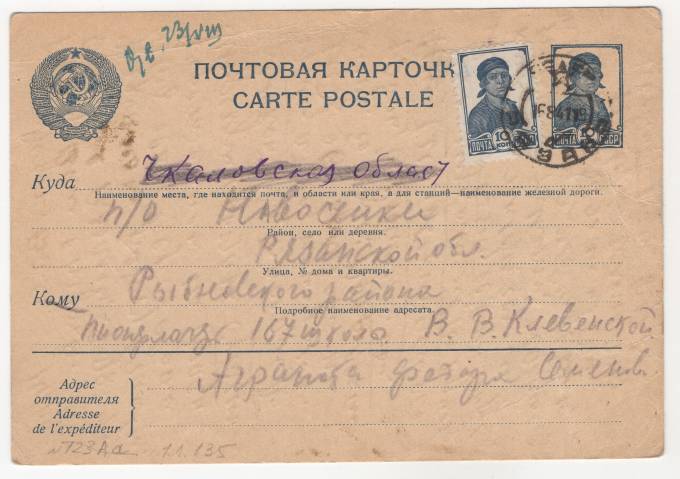 ПОЧТОВАЯ КАРТОЧК
CARTE POSTALE
ПОЧТА 10 КОП
ПОЧТА 10 СССР
Куда Чкаловская област
Наименование места, где находится почта, и области или края, а для станций—наименование железной дороги.
п/о Новоселки
Район, село или деревня.
Рязанской обл.
Улица, № дома и квартиры.
Кому Рыбновского района
Подробное наименование адресата.
167 школа В. В. Клевенской
Адрес
отправителя
Adresse
de l'expéditeur
1.1.135